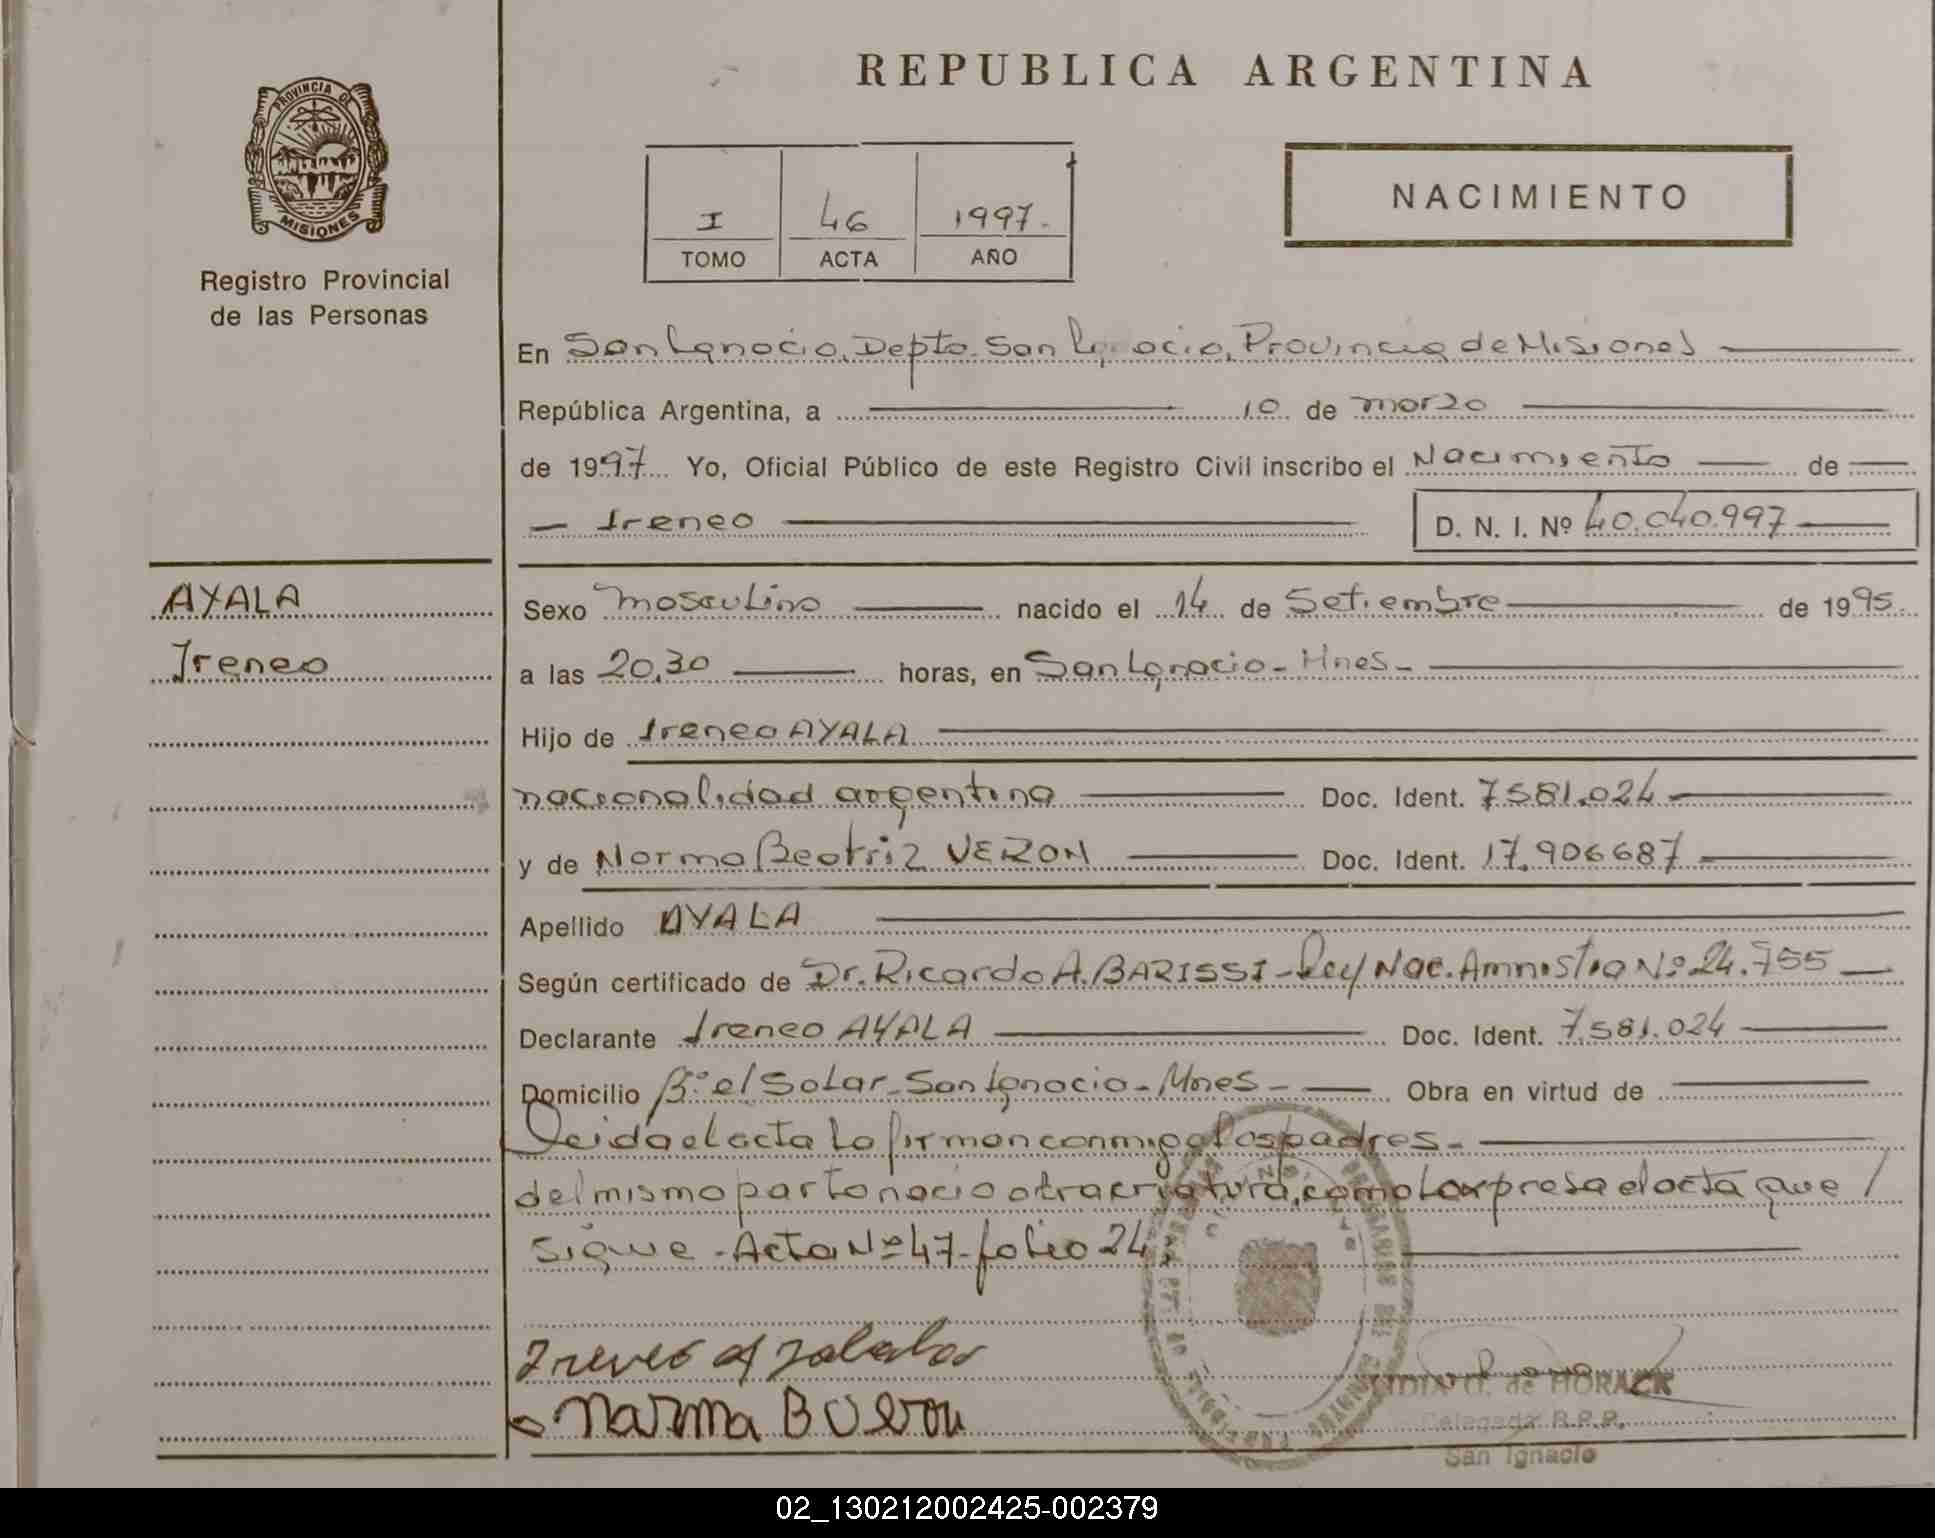 REPUBLICA ARGENTINA
PROVINCIA DE
MISIONES
Registro Provincial
de las Personas
I 46 1997.
TOMO ACTA AÑO
NACIMIENTO
En San Ignacio, Depto. San Ignacio, Provincia de Misiones
República Argentina, a 10 de marzo
de 1997 Yo, Oficial Público de este Registro Civil inscribo el Nacimiento de
Ireneo D. N. I. Nº 40.040.997
AYALA
Ireneo
Sexo masculino nacido el 14 de Setiembre de 1995
a las 20,30 horas, en San Ignacio - Mnes -
Hijo de Ireneo AYALA
nacionalidad argentina Doc. Ident. 7.581.024
y de Norma Beatriz VERON Doc. Ident. 17.906687
Apellido AYALA
Según certificado de Dr. Ricardo A. BARISSI - Ley Nac. Amnistia Nº 24.755
Declarante Ireneo AYALA Doc. Ident. 7.581.024
Domicilio Bº el Solar - San Ignacio - Mnes - Obra en virtud de
Leida el acta la firman conmigo los padres -
del mismo parto nacio otra criatura, como lo expresa el acta que /
sigue - Acta Nº 47 - folio 24
Norma B Veron
de HORACK
Delegada R.P.P.
San Ignacio
02_130212002425-002379